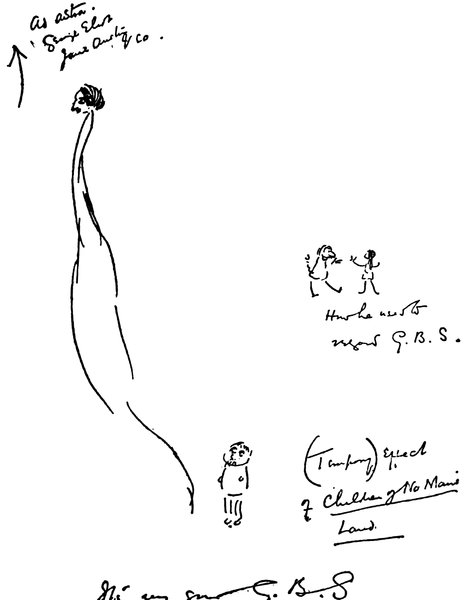 Ad astra.
George Eliot
Jane Austin & Co.
How he used to
regard G. B. S.
(Temporary) Effect
of Children of No Man's
Land.
G. B. S